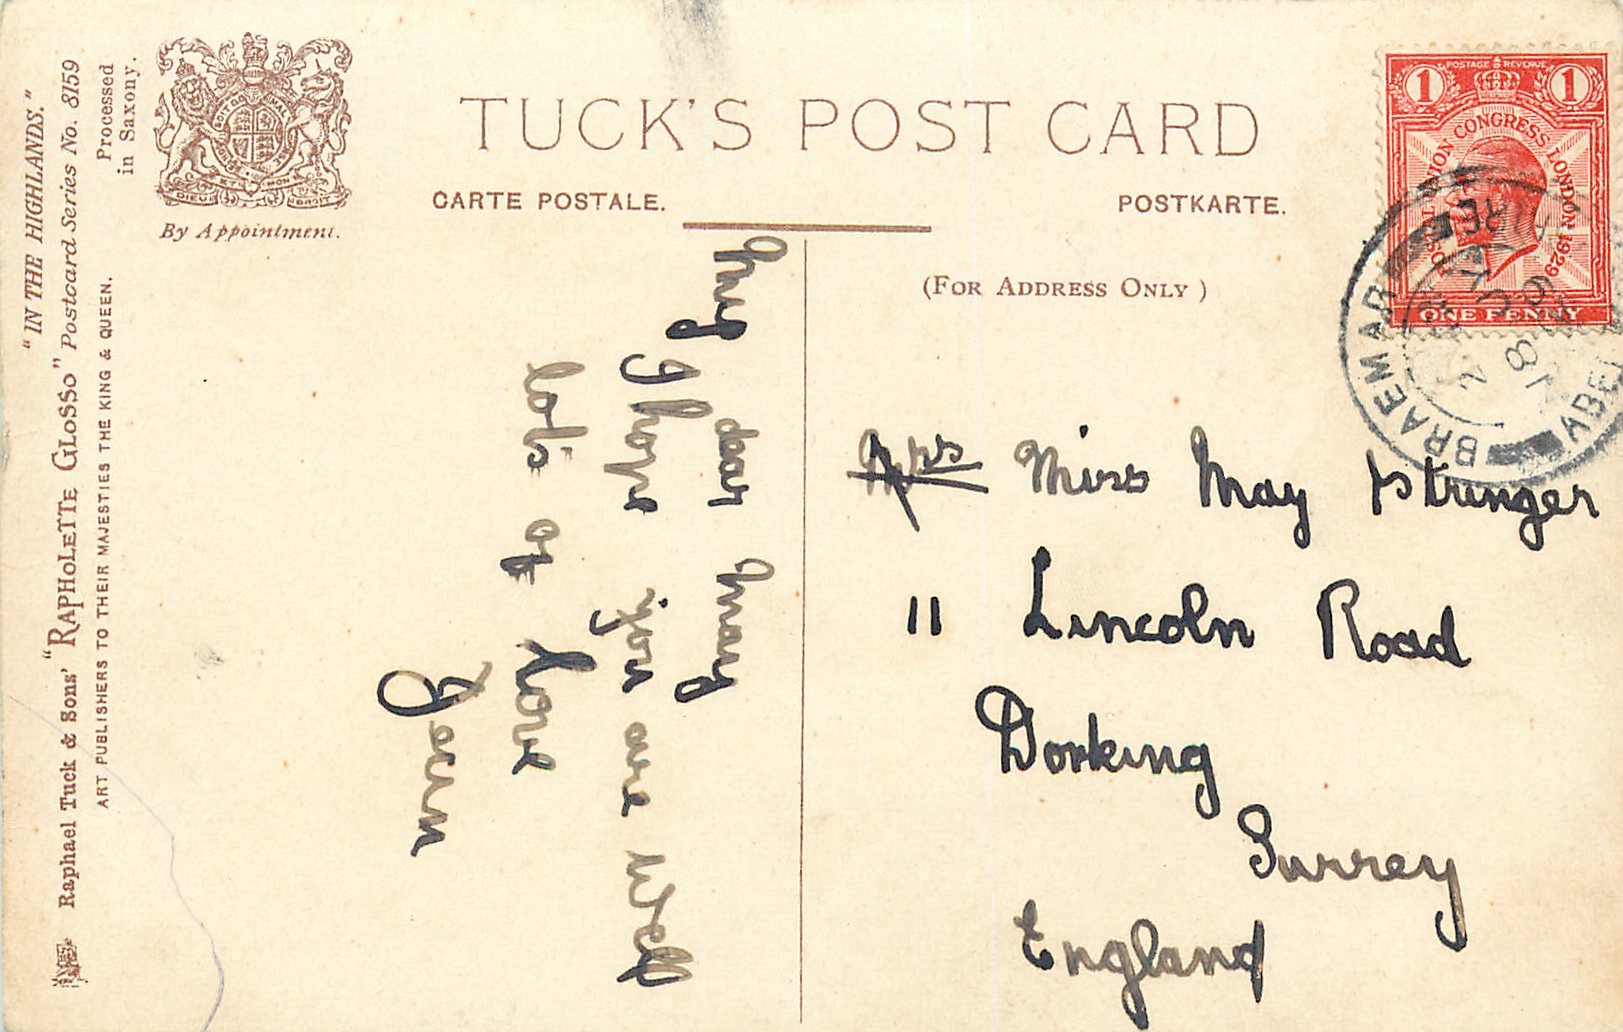 "IN THE HIGHLANDS."
Raphael Tuck & Sons' "RAPHOLETTE GLOSSO" Postcard Series No. 8159
ART PUBLISHERS TO THEIR MAJESTIES THE KING & QUEEN.
Processed
in Saxony.
DIEU ET MON DROIT
By Appointment.
TUCK'S POST CARD
CARTE POSTALE.
POSTKARTE.
(FOR ADDRESS ONLY)
My dear May
I hope you are well
lots of love
Jean
Mrs Miss May Stringer
11 Lincoln Road
Dorking
Surrey
England
POSTAGE REVENUE
1 1
POSTAL UNION CONGRESS LONDON 1929
ONE PENNY
BRAEMAR